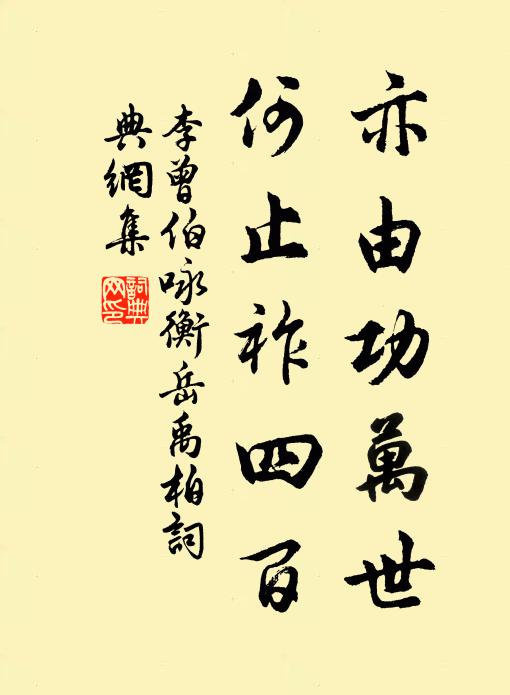 亦由功萬世
何止祚四百
李曾伯咏衡岳禹柏詞
典網集
詞典
网印